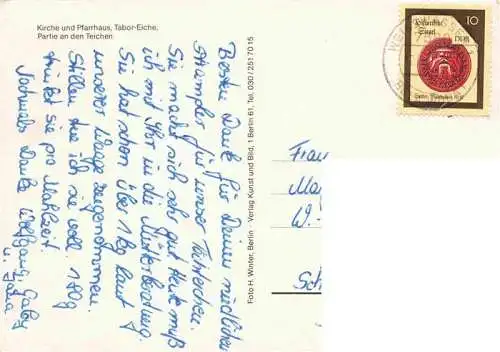 Kirche und Pfarrhaus, Tabor-Eiche,
Partie an den Teichen
Besten Dank für Deinen niedlichen
Strampler für unser Töchterchen.
Sie macht sich sehr gut. Heute muß
ich mit Ihr in die Mütterberatung.
Sie hat schon über 1 kg laut
unserer Waage zugenommen.
Stillen tue ich sie voll. 180g
trinkt sie pro Mahlzeit.
Nochmals Danke Wolfgang, Gaby
u.
Foto H. Winter, Berlin · Verlag Kunst und Bild, 1 Berlin 61, Tel. 030/251 70 15
10
DDR
Frau
W.-